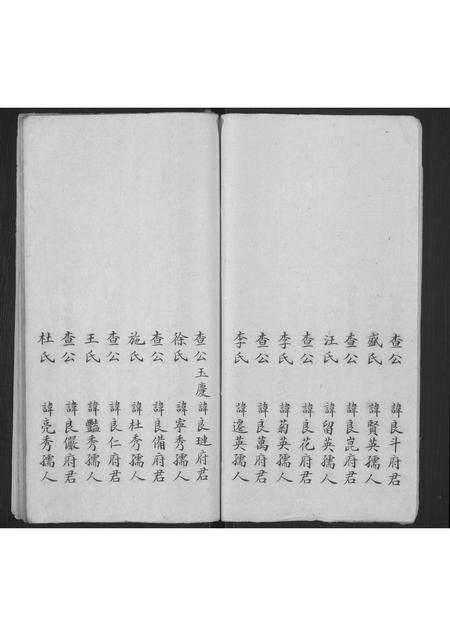 查公 諱良斗府君
盛氏 諱賢英孺人
查公 諱良崑府君
汪氏 諱留英孺人
查公 諱良花府君
李氏 諱菊英孺人
查公 諱良萬府君
李氏 諱逢英孺人
查公玉慶 諱良璉府君
徐氏 諱寧秀孺人
查公 諱良備府君
施氏 諱杜秀孺人
查公 諱良仁府君
王氏 諱豔秀孺人
查公 諱良儼府君
杜氏 諱亮秀孺人